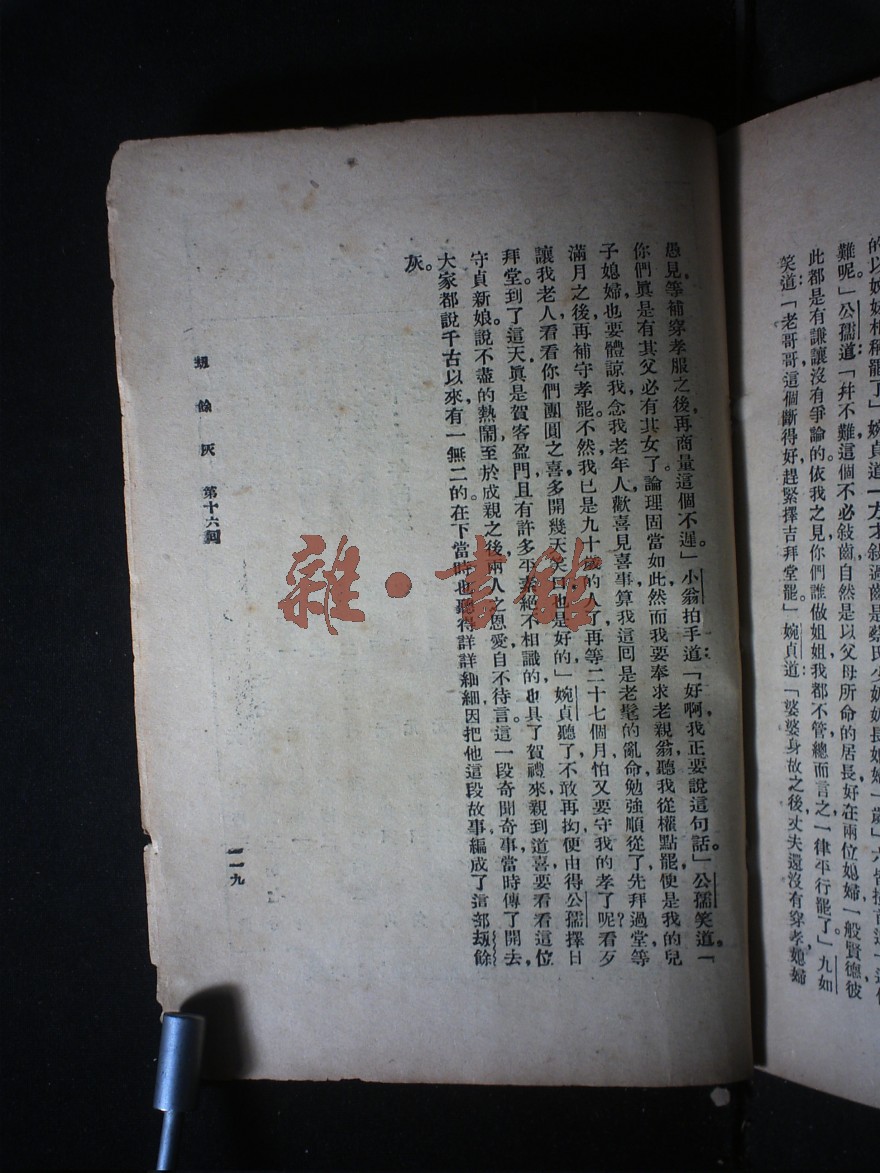 難呢」公孺道「幷不難這個不必敍齒自然是以父母所命的居長好在兩位媳婦一般賢德彼
此都是有謙讓沒有爭論的依我之見你們誰做姐姐我都不管總而言之一律平行罷了」九如
笑道「老哥哥這個斷得好趕緊擇吉拜堂罷」婉貞道「婆婆身故之後丈夫還沒有穿孝媳婦
愚見等補穿孝服之後再商量這個不遲」小翁拍手道「好啊我正要說這句話」公孺笑道「
你們眞是有其父必有其女了論理固當如此然而我要奉求老親翁聽我從權點罷便是我的兒
子媳婦也要體諒我念我老年人歡喜見喜事算我這回是老髦的亂命勉強順從了先拜過堂等
滿月之後再補守孝罷不然我已是九十歲的人了再等二十七個月怕又要守我的孝了呢看歹
讓我老人看看你們團圓之喜多開幾天笑口也是好的」婉貞聽了不敢再拗便由得公孺擇日
拜堂到了這天眞是賀客盈門且有許多平素絕不相識的也具了賀禮來親到道喜要看看這位
守貞新娘說不盡的熱鬧至於成親之後兩人之恩愛自不待言這一段奇聞奇事當時傳了開去
大家都說千古以來有一無二的在下當時也聽得詳詳細細因把他這段故事編成了這部刼餘
灰。
刼餘灰 第十六回
一一九
雜·書館